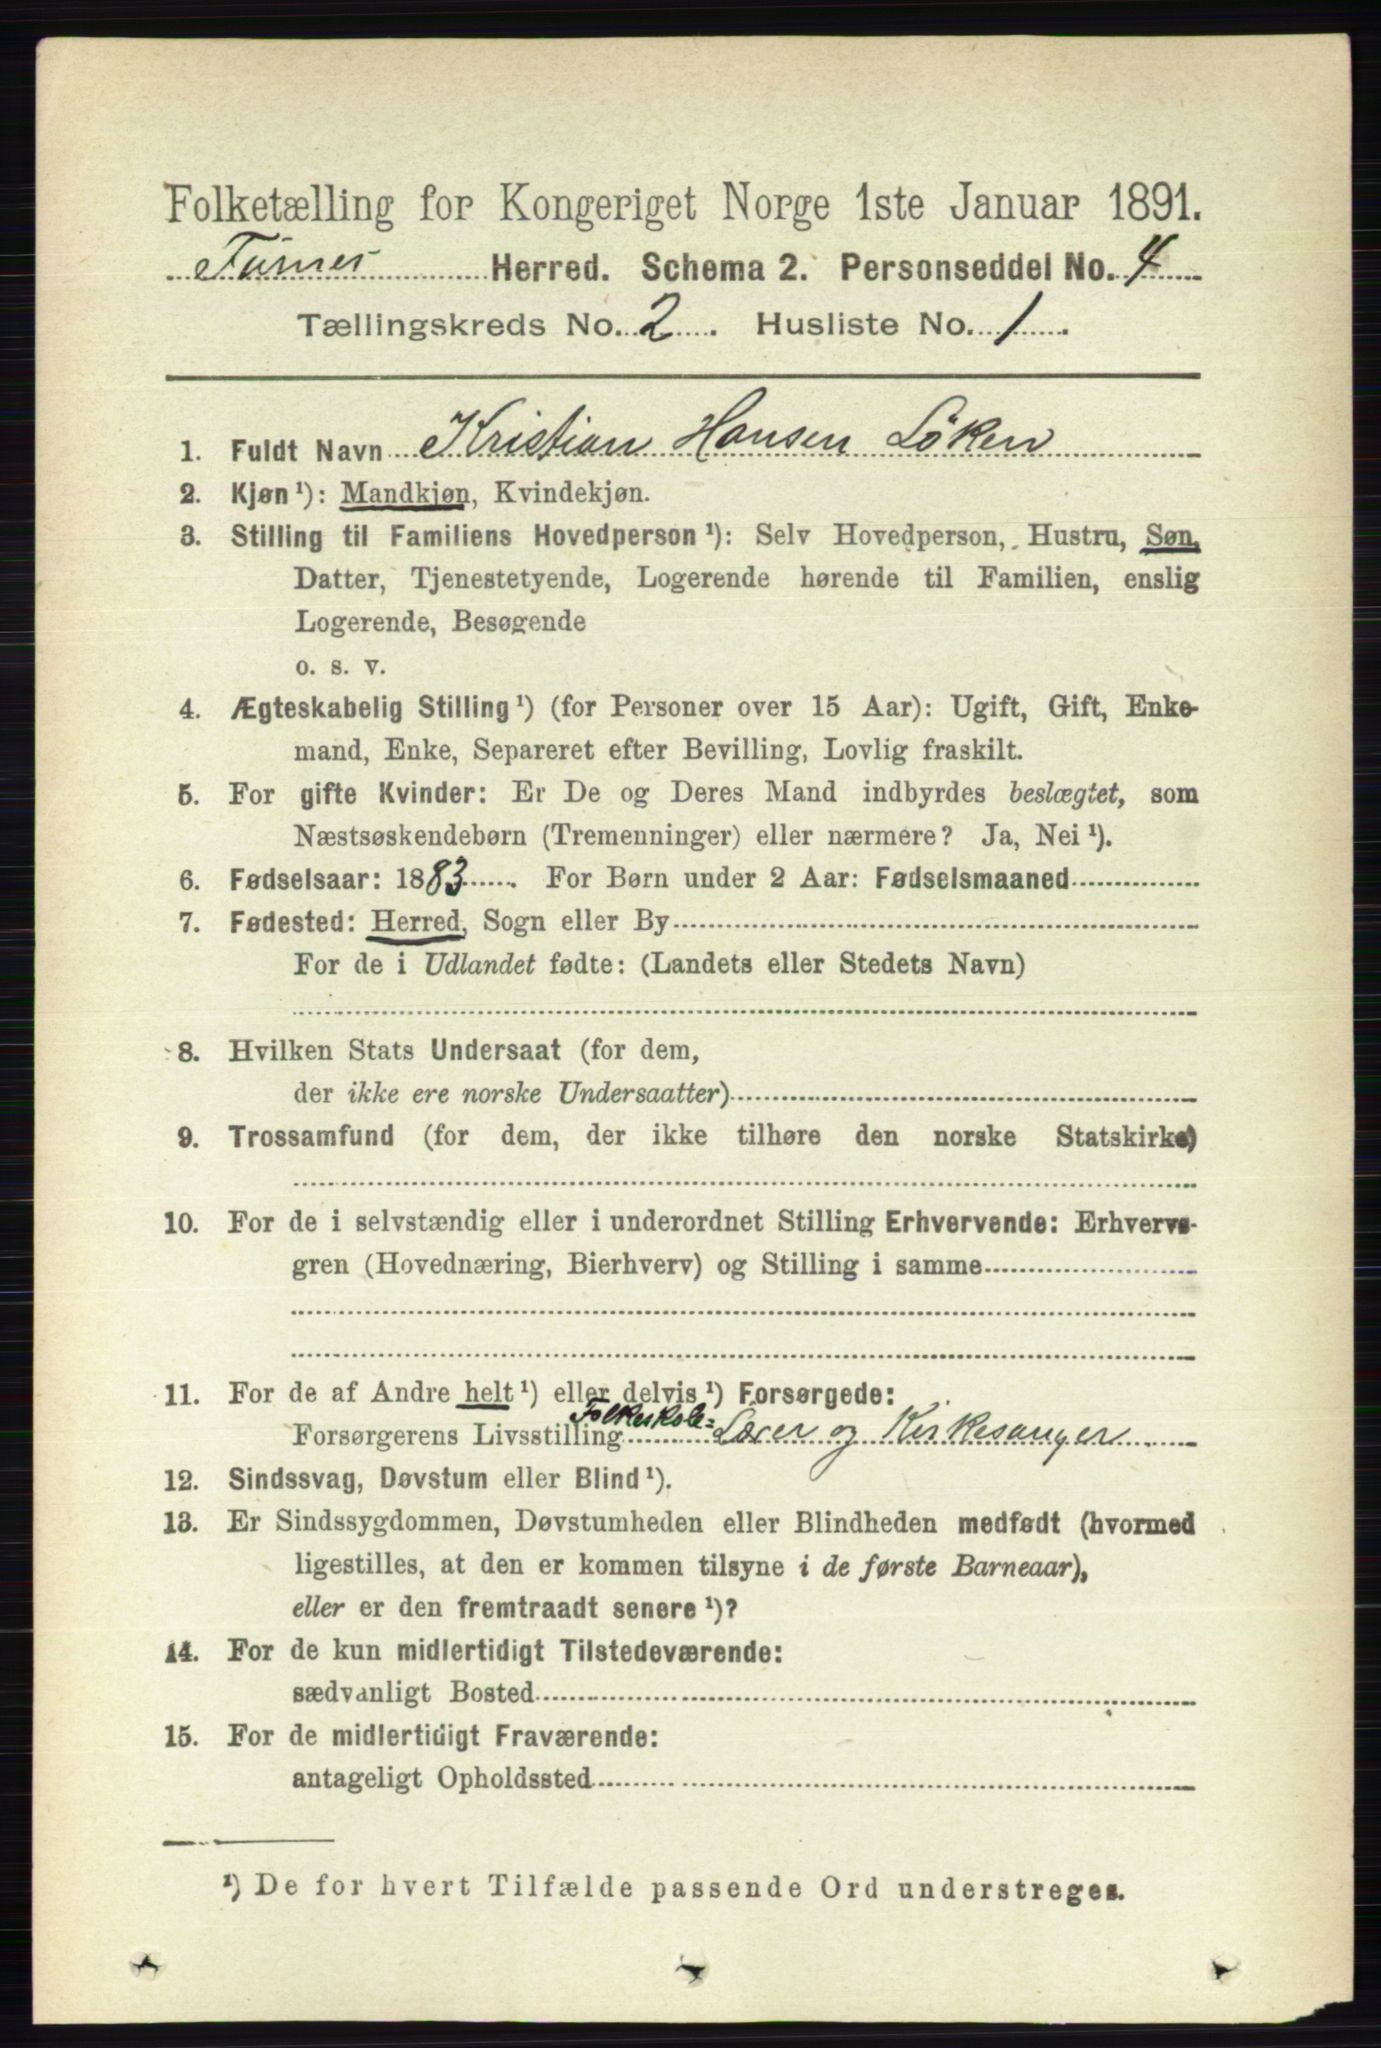 Folketælling for Kongeriget Norge 1ste Januar 1891.
Furnes Herred. Schema 2. Personseddel No. 4
Tællingskreds No. 2. Husliste No. 1.
1. Fuldt Navn Kristian Hansen Löken
2. Kjøn¹): Mandkjøn, Kvindekjøn.
3. Stilling til Familiens Hovedperson¹): Selv Hovedperson, Hustru, Søn,
Datter, Tjenestetyende, Logerende hørende til Familien, enslig
Logerende, Besøgende
o. s. v.
4. Ægteskabelig Stilling¹) (for Personer over 15 Aar): Ugift, Gift, Enke-
mand, Enke, Separeret efter Bevilling, Lovlig fraskilt.
5. For gifte Kvinder: Er De og Deres Mand indbyrdes beslægtet, som
Næstsøskendebørn (Tremenninger) eller nærmere? Ja, Nei¹).
6. Fødselsaar: 1883. For Børn under 2 Aar: Fødselsmaaned
7. Fødested: Herred, Sogn eller By
For de i Udlandet fødte: (Landets eller Stedets Navn)
8. Hvilken Stats Undersaat (for dem,
der ikke ere norske Undersaatter)
9. Trossamfund (for dem, der ikke tilhøre den norske Statskirke)
10. For de i selvstændig eller i underordnet Stilling Erhvervende: Erhvervs-
gren (Hovednæring, Bierhverv) og Stilling i samme
11. For de af Andre helt¹) eller delvis¹) Forsørgede:
Forsørgerens Livsstilling Folkeskole= Lærer og Kirkesanger
12. Sindssvag, Døvstum eller Blind¹).
13. Er Sindssygdommen, Døvstumheden eller Blindheden medfødt (hvormed
ligestilles, at den er kommen tilsyne i de første Barneaar),
eller er den fremtraadt senere¹)?
14. For de kun midlertidigt Tilstedeværende:
sædvanligt Bosted
15. For de midlertidigt Fraværende:
antageligt Opholdssted
¹) De for hvert Tilfælde passende Ord understreges.